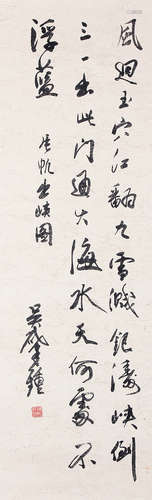 風迴玉穴江翻九雪濺銀濤峽倒
三一出此門通大海水天何處不
浮藍 帆出峽圖
吳